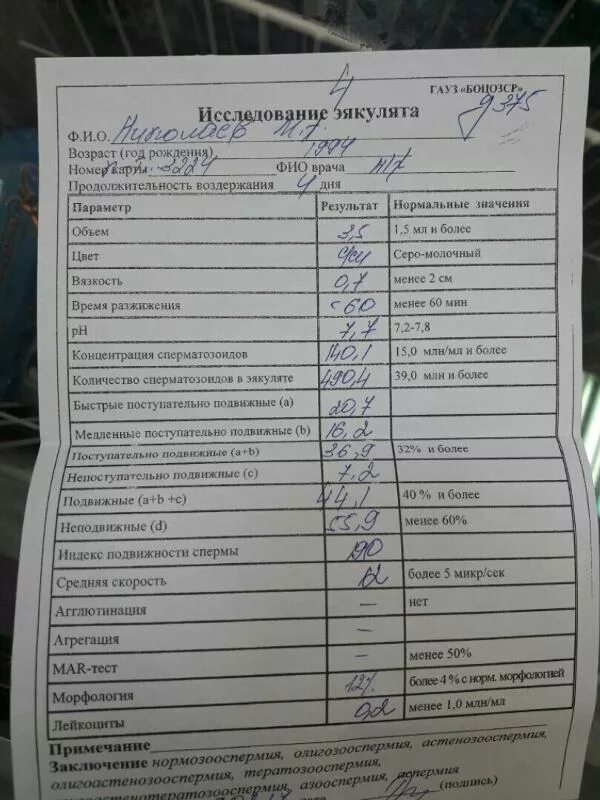 4
ГАУЗ «БОЦОЗСР»
9375
Исследование эякулята
Ф.И.О. Николаев М.
Возраст (год рождения) 1994
Номер карты 3224 ФИО врача
Продолжительность воздержания 4 дня
Параметр Результат Нормальные значения
Объем 3,5 1,5 мл и более
Цвет с/м Серо-молочный
Вязкость 0,7 менее 2 см
Время разжижения <60 менее 60 мин
рН 7,7 7,2-7,8
Концентрация сперматозоидов 140,1 15,0 млн/мл и более
Количество сперматозоидов в эякуляте 490,4 39,0 млн и более
Быстрые поступательно подвижные (a) 20,7
Медленные поступательно подвижные (b) 16,2
Поступательно подвижные (a+b) 36,9 32% и более
Непоступательно подвижные (c) 7,2
Подвижные (a+b +c) 44,1 40 % и более
Неподвижные (d) 55,9 менее 60%
Индекс подвижности спермы 190
Средняя скорость 12 более 5 микр/сек
Агглютинация – нет
Агрегация –
MAR-тест – менее 50%
Морфология 12% более 4 % с норм. морфологией
Лейкоциты 0,2 менее 1,0 млн/мл
Примечание
Заключение нормозооспермия, олигозооспермия, астенозооспермия,
олигоастенозооспермия, тератозооспермия,
олигоастенотератозооспермия, азооспермия, аспермия
дата (подпись)